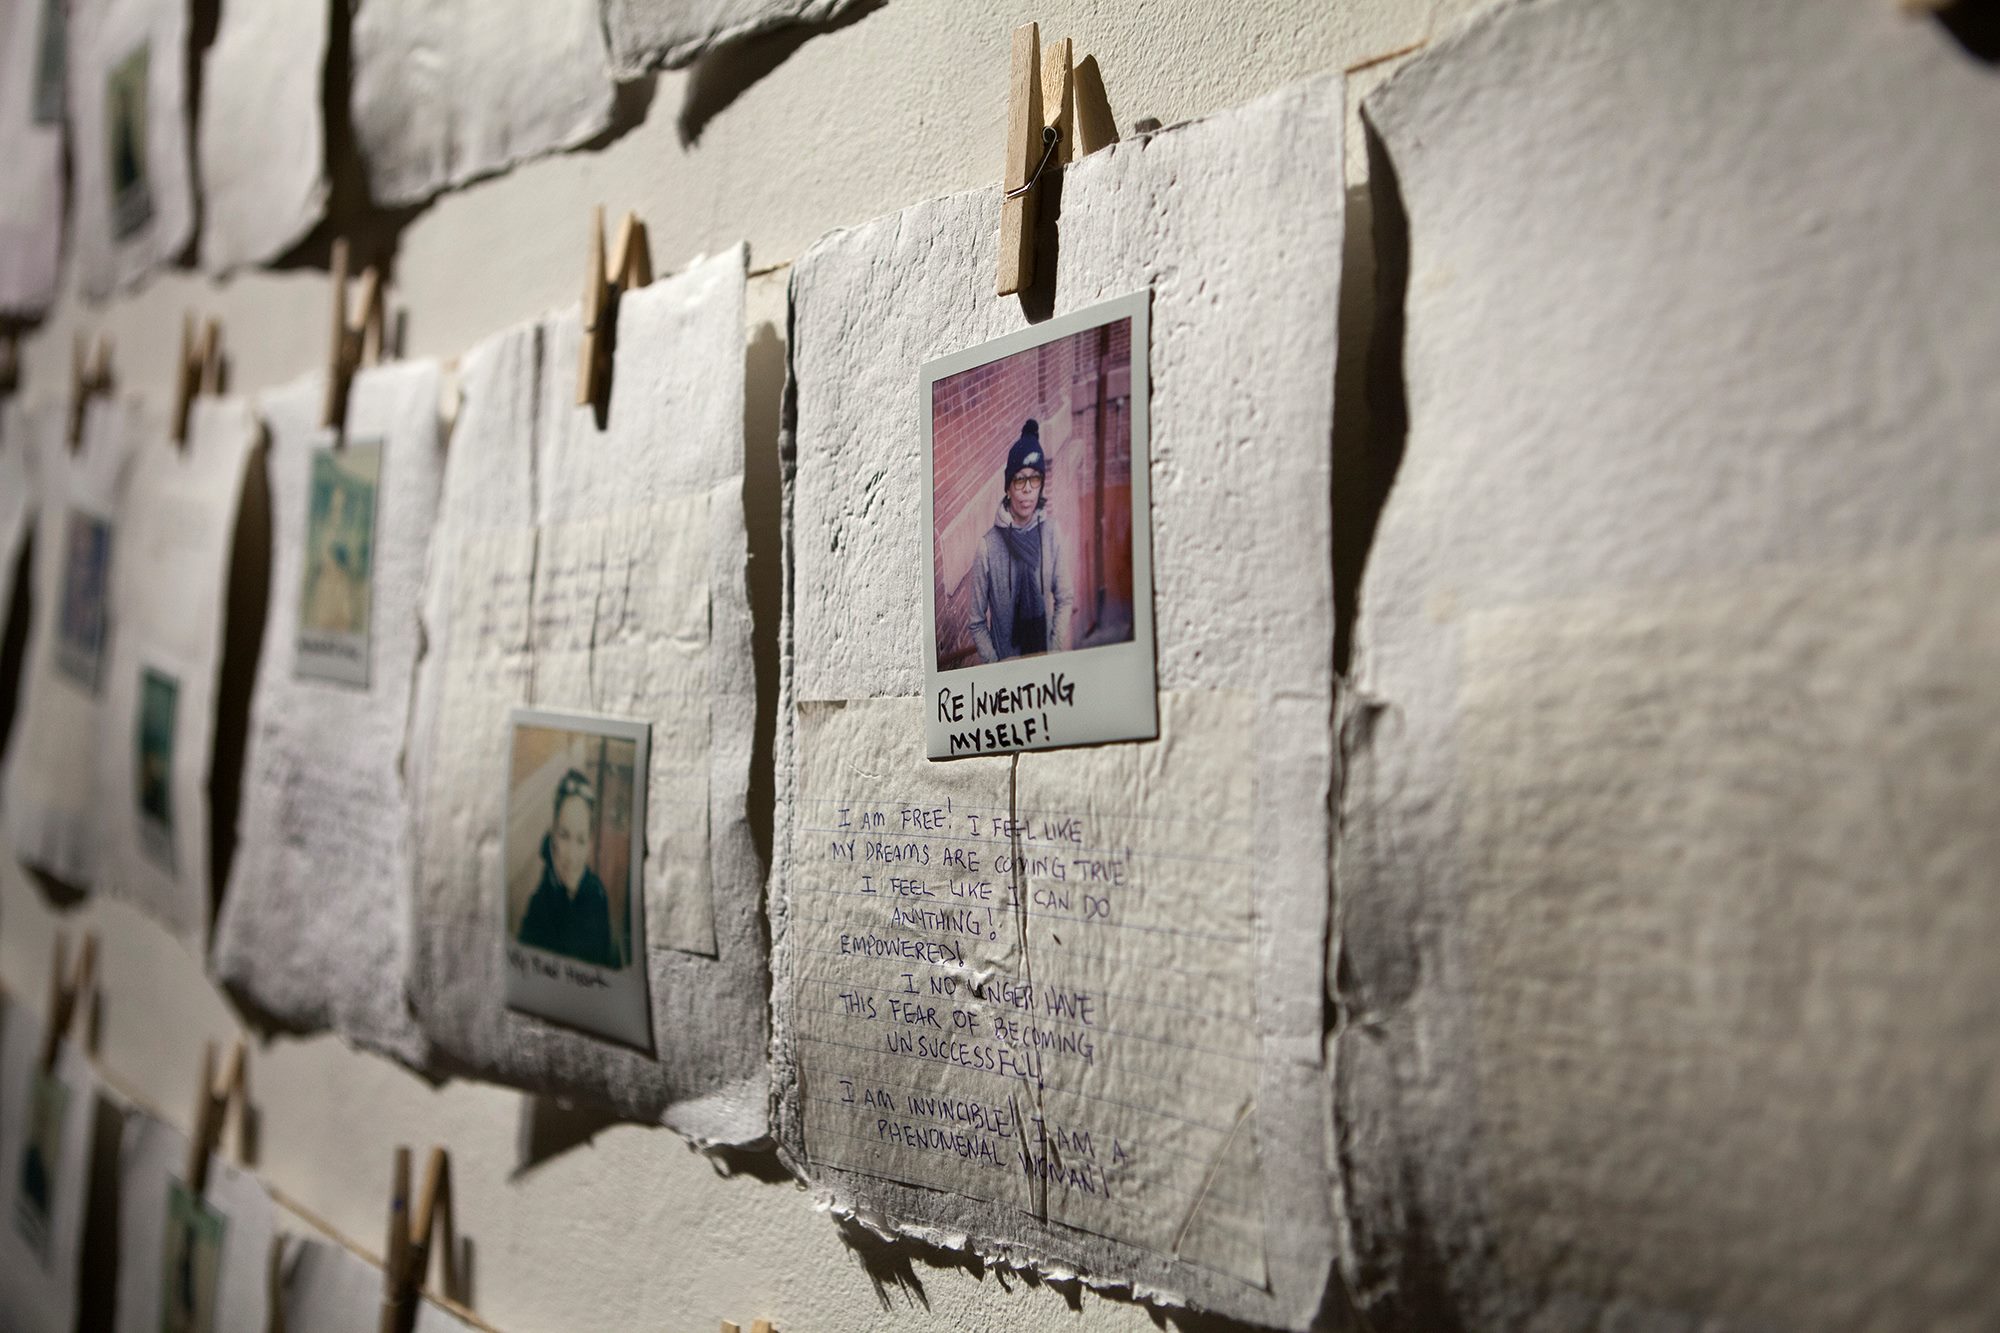 REINVENTING
MYSELF!
I AM FREE! I FEEL LIKE
MY DREAMS ARE COMING TRUE!
I FEEL LIKE I CAN DO
ANYTHING!
EMPOWERED!
I NO LONGER HAVE
THIS FEAR OF BECOMING
UNSUCCESSFUL!
I AM INVINCIBLE! I AM A
PHENOMENAL WOMAN!